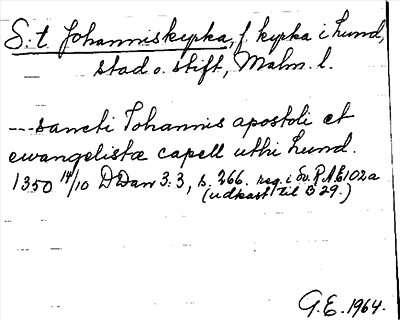 S:t Johanniskyrka, f. kyrka i Lund,
stad o. stift, Malm. l.
---sancti Johannis apostoli et
ewangelistæ capell uthi Lund.
1350 14/10 DDan 3:3, s. 266. reg. i Sv. RA E102a
(udkast til B 29.)
G.E. 1964.